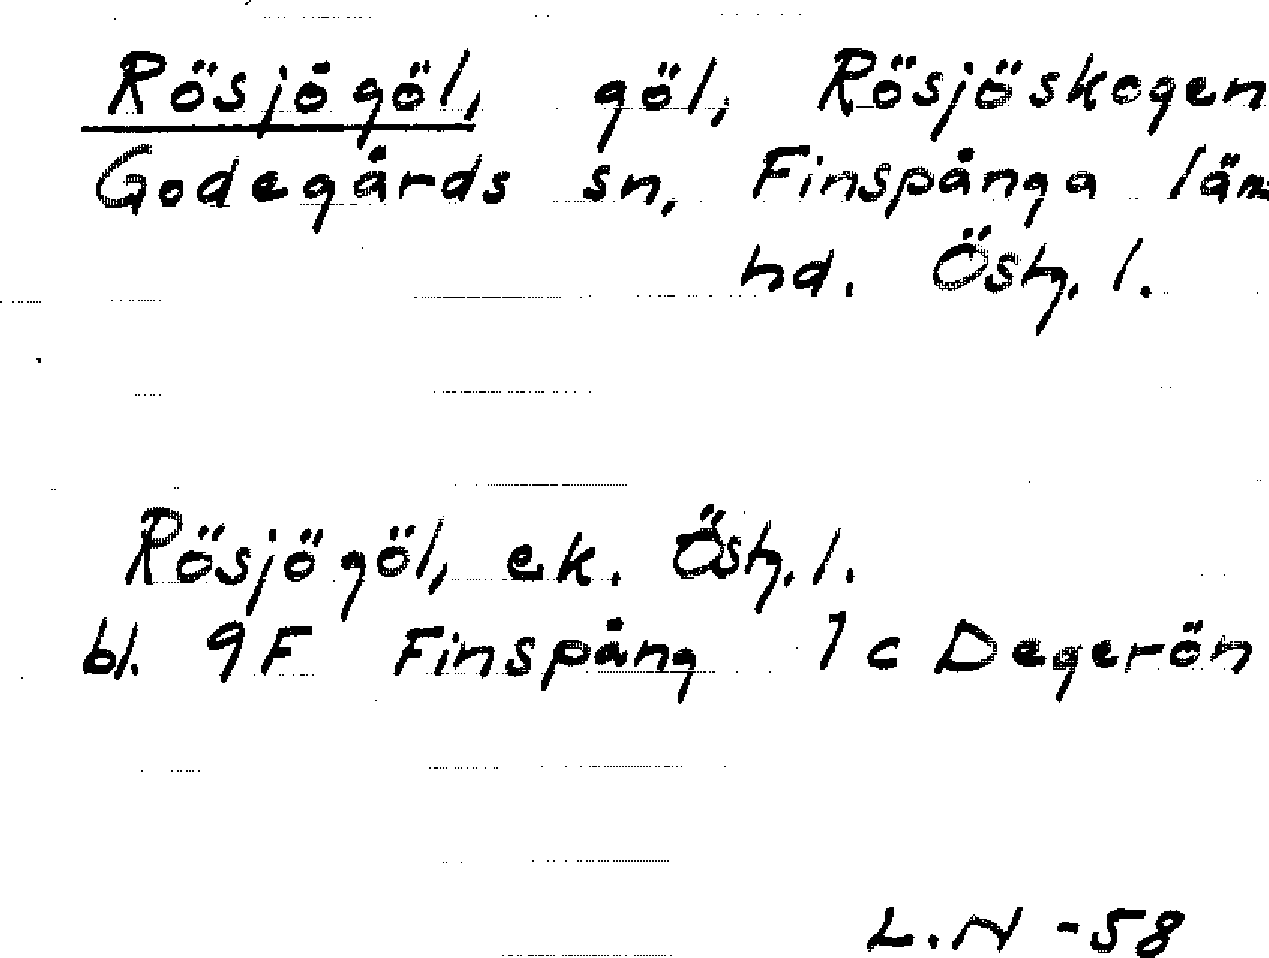 Rösjögöl, göl, Rösjöskogen
Godegårds sn, Finspånga län
hd. Östg. l.
Rösjögöl, ek. Östg. l.
bl. 9F Finspång 1c Degerön
L.N -58